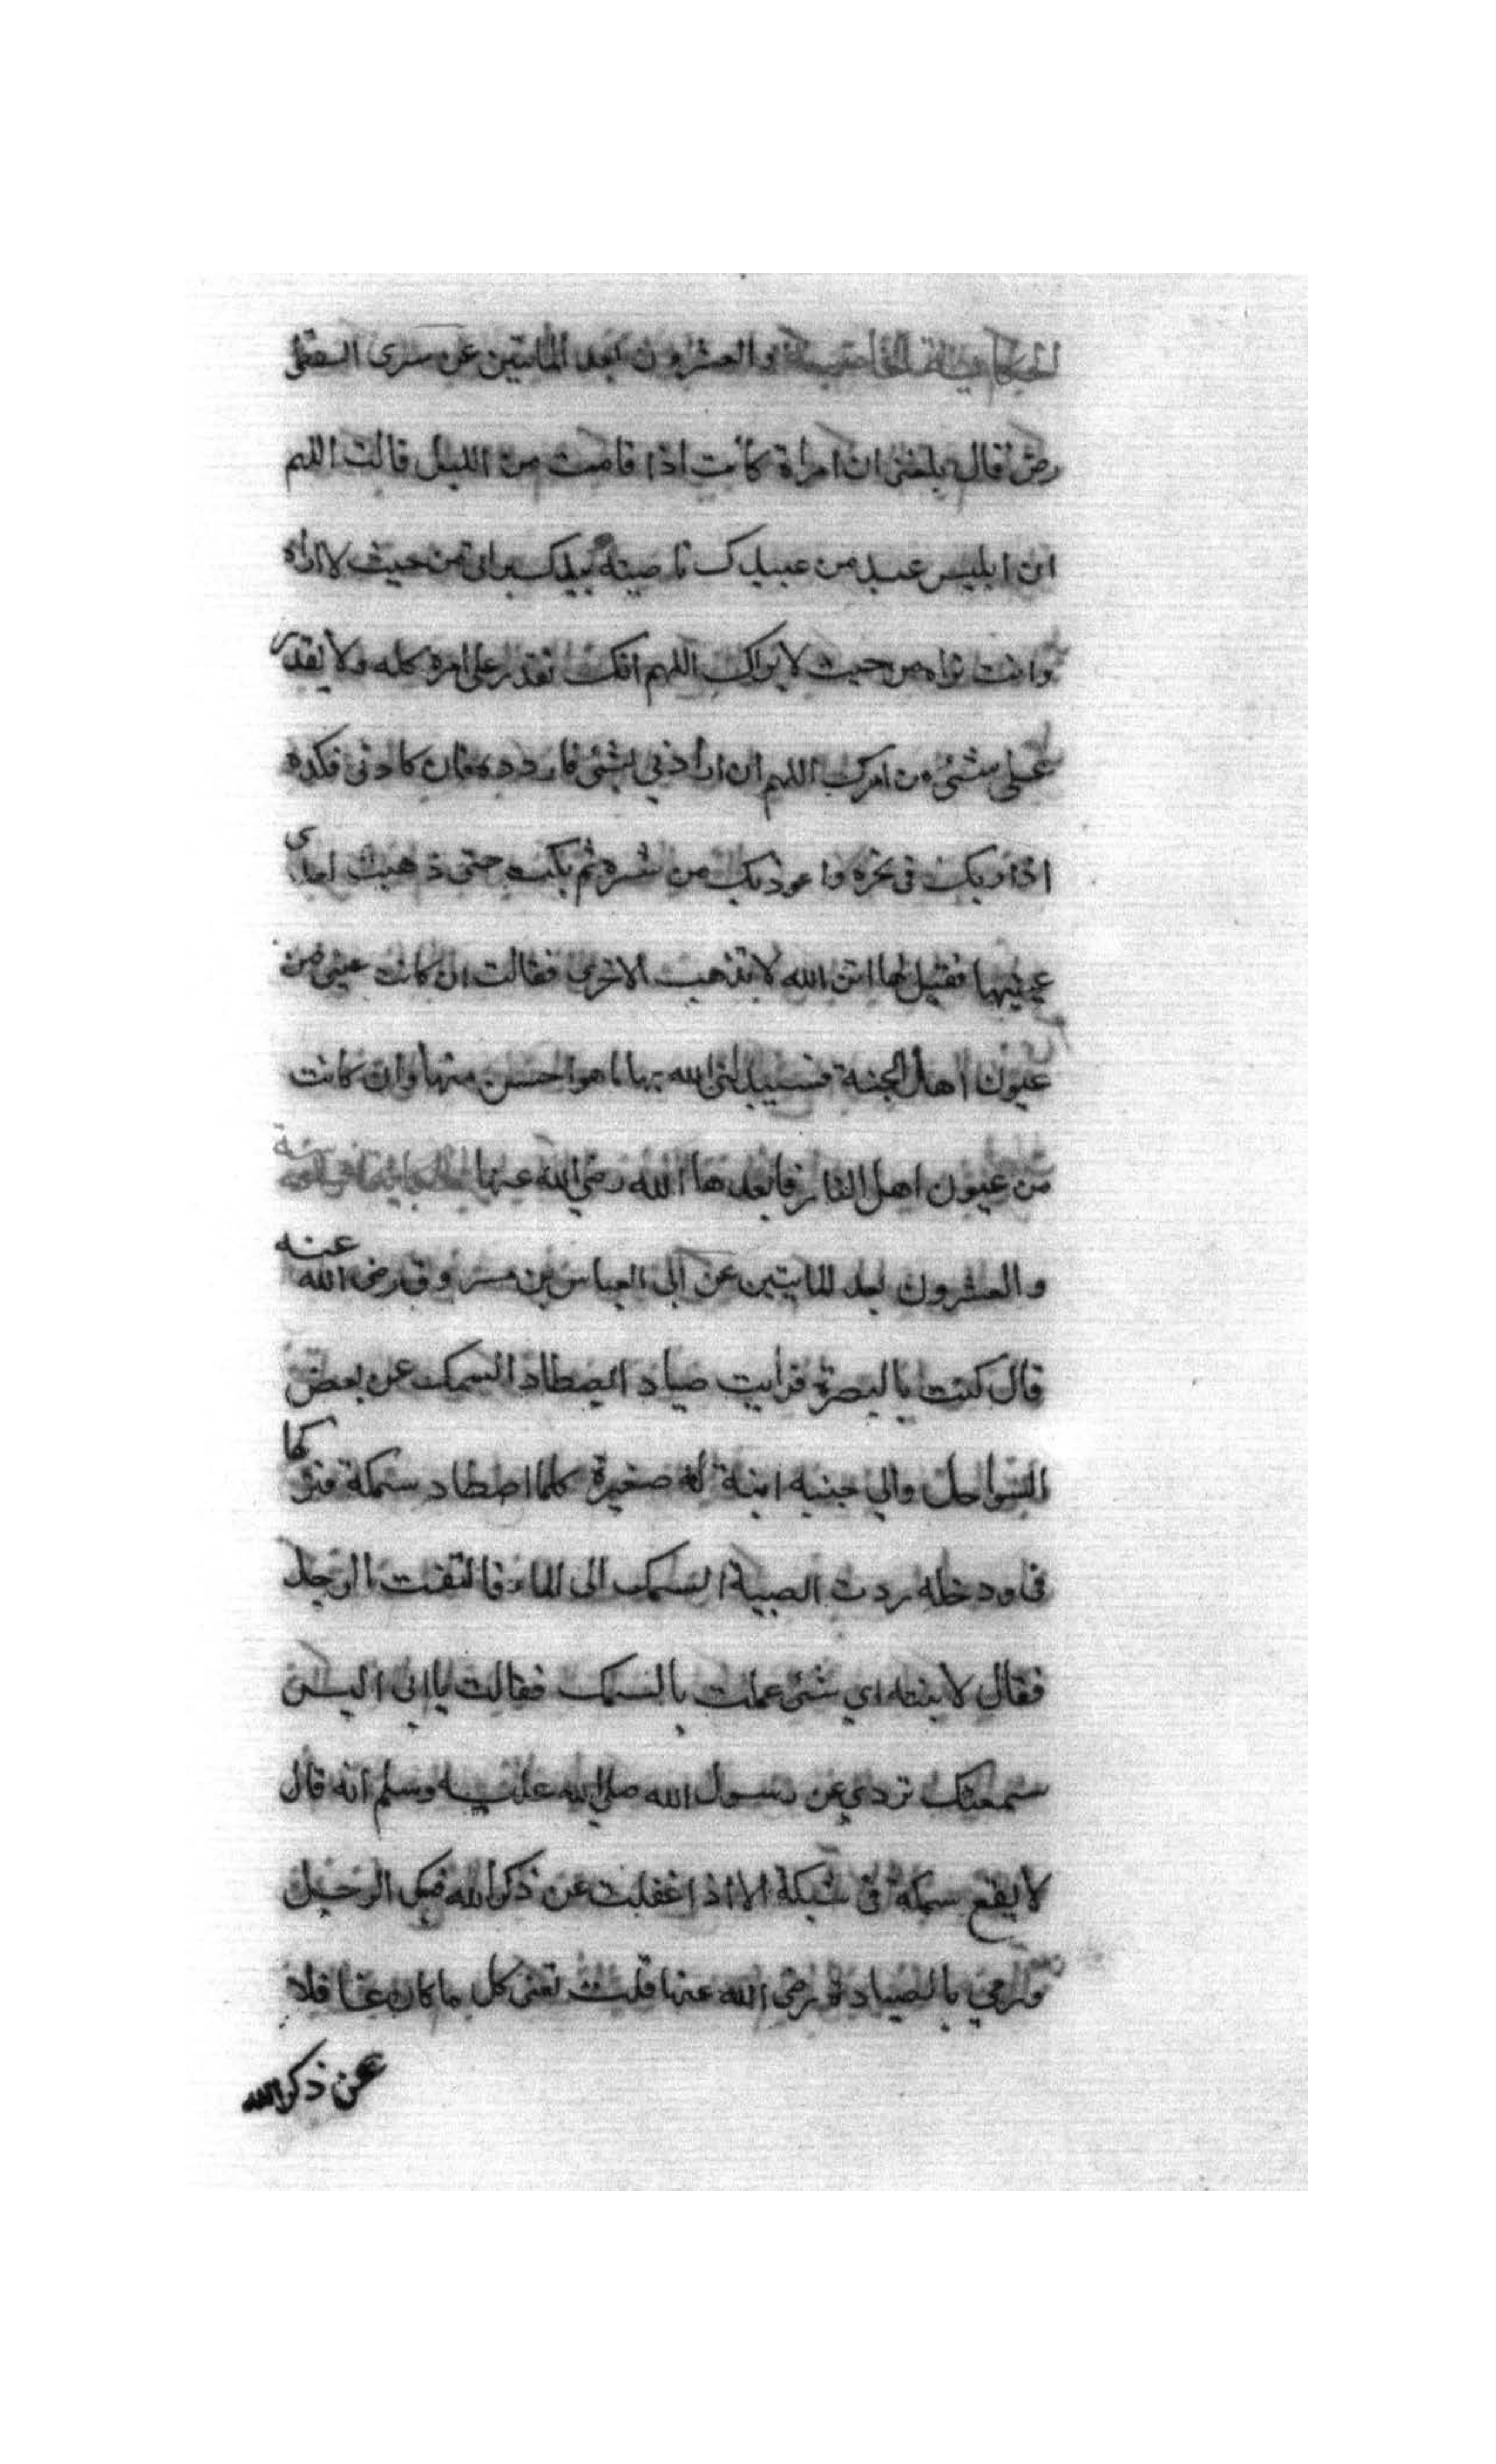 الحكاية الخامسة والعشرون بعد المايتين عن سرى السقطى
رض قال بلغنى ان امراة كانت اذا قامت من الليل قالت اللهم
ان ابليس عبد من عبيدك ناصيته بيدك يرانى من حيث لا اراه
وانت تراه من حيث لا يراك اللهم انك تقدر على امره كله ولا يقدر
على شئ من امرك اللهم ان ارادنى بشئ فاردده وان كادنى فكده
ادراء بك فى نحره واعوذ بك من شره ثم بكت حتى ذهبت احدى
عينيها فقيل لها اتق الله لا تذهب الاخرى فقالت ان كانت عينى من
عيون اهل الجنة فسيبدلنى الله بها ما هو احسن منها وان كانت
من عيون اهل النار فابعدها الله رضي الله عنها
والعشرون بعد المايتين عن ابى العباس بن مسروق رضى الله عنه
قال كنت بالبصرة فرايت صياد ايصطاد السمك عن بعض
السواحل والي جنبه ابنة له صغيرة كلما اصطاد سمكة فتركها
فى دوخله ردت الصبية السمك الى الماء فالتفت الرجل
فقال لابنته اي شئ عملت بالسمك فقالت يا ابى اليس
سمعتك تروي عن رسول الله صلى الله عليه وسلم انه قال
لا يقع سمكة فى شبكة الا اذا غفلت عن ذكر الله فبكى الرجل
ورمي بالصياد رضى الله عنها قلت تعنى كل ما كان غافلا
عن ذكر الله